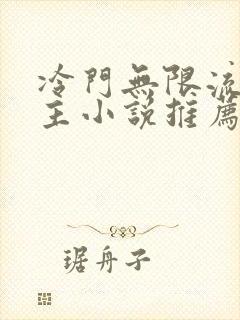 冷門無限流
主小說推薦
琚舟子